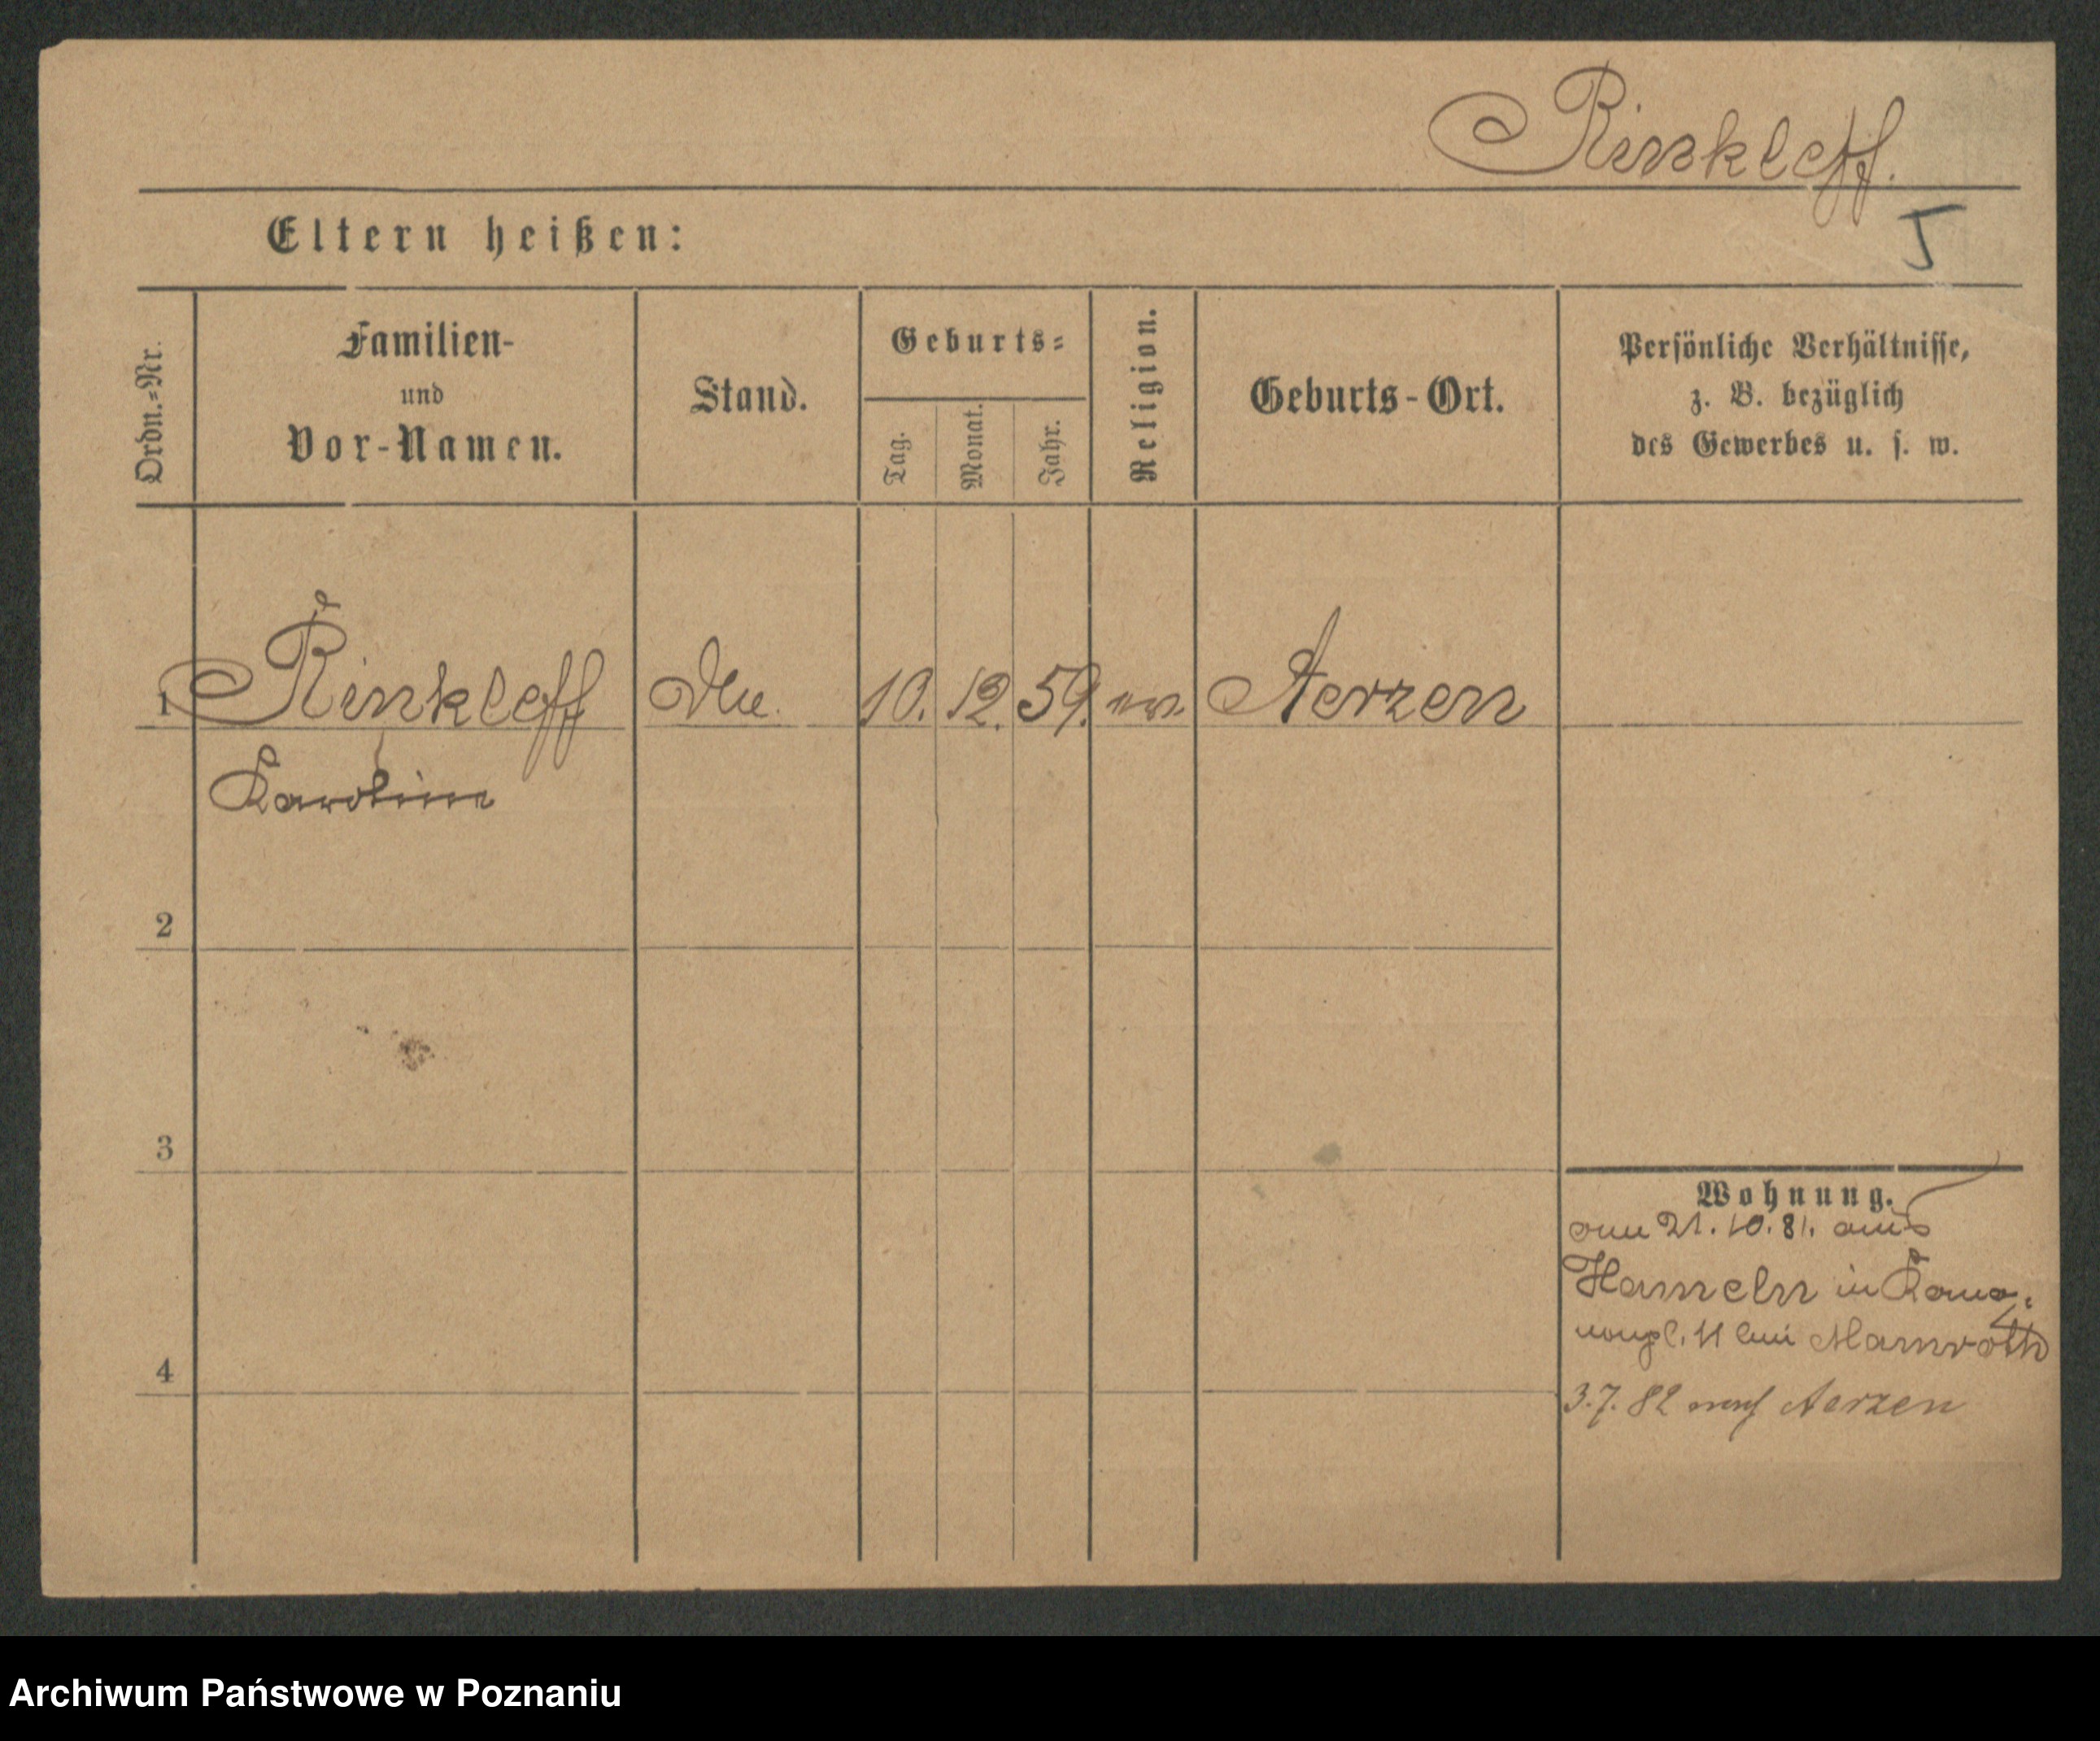 Rinkleff.
Eltern heißen:
5
Ordn.=Nr.
Familien-
und
Vor-Namen.
Stand.
Geburts=
Tag.
Monat.
Jahr.
Religion.
Geburts-Ort.
Persönliche Verhältnisse,
z. B. bezüglich
des Gewerbes u. s. w.
1 Rinkleff 10. 12. 59. ev. Aerzen
Karoline
2
3
4
Wohnung.
am 21. 10. 81. aus
Hameln in Kano-
nenpl. 11 bei Mamroth
3.7.82 nach Aerzen
Archiwum Państwowe w Poznaniu